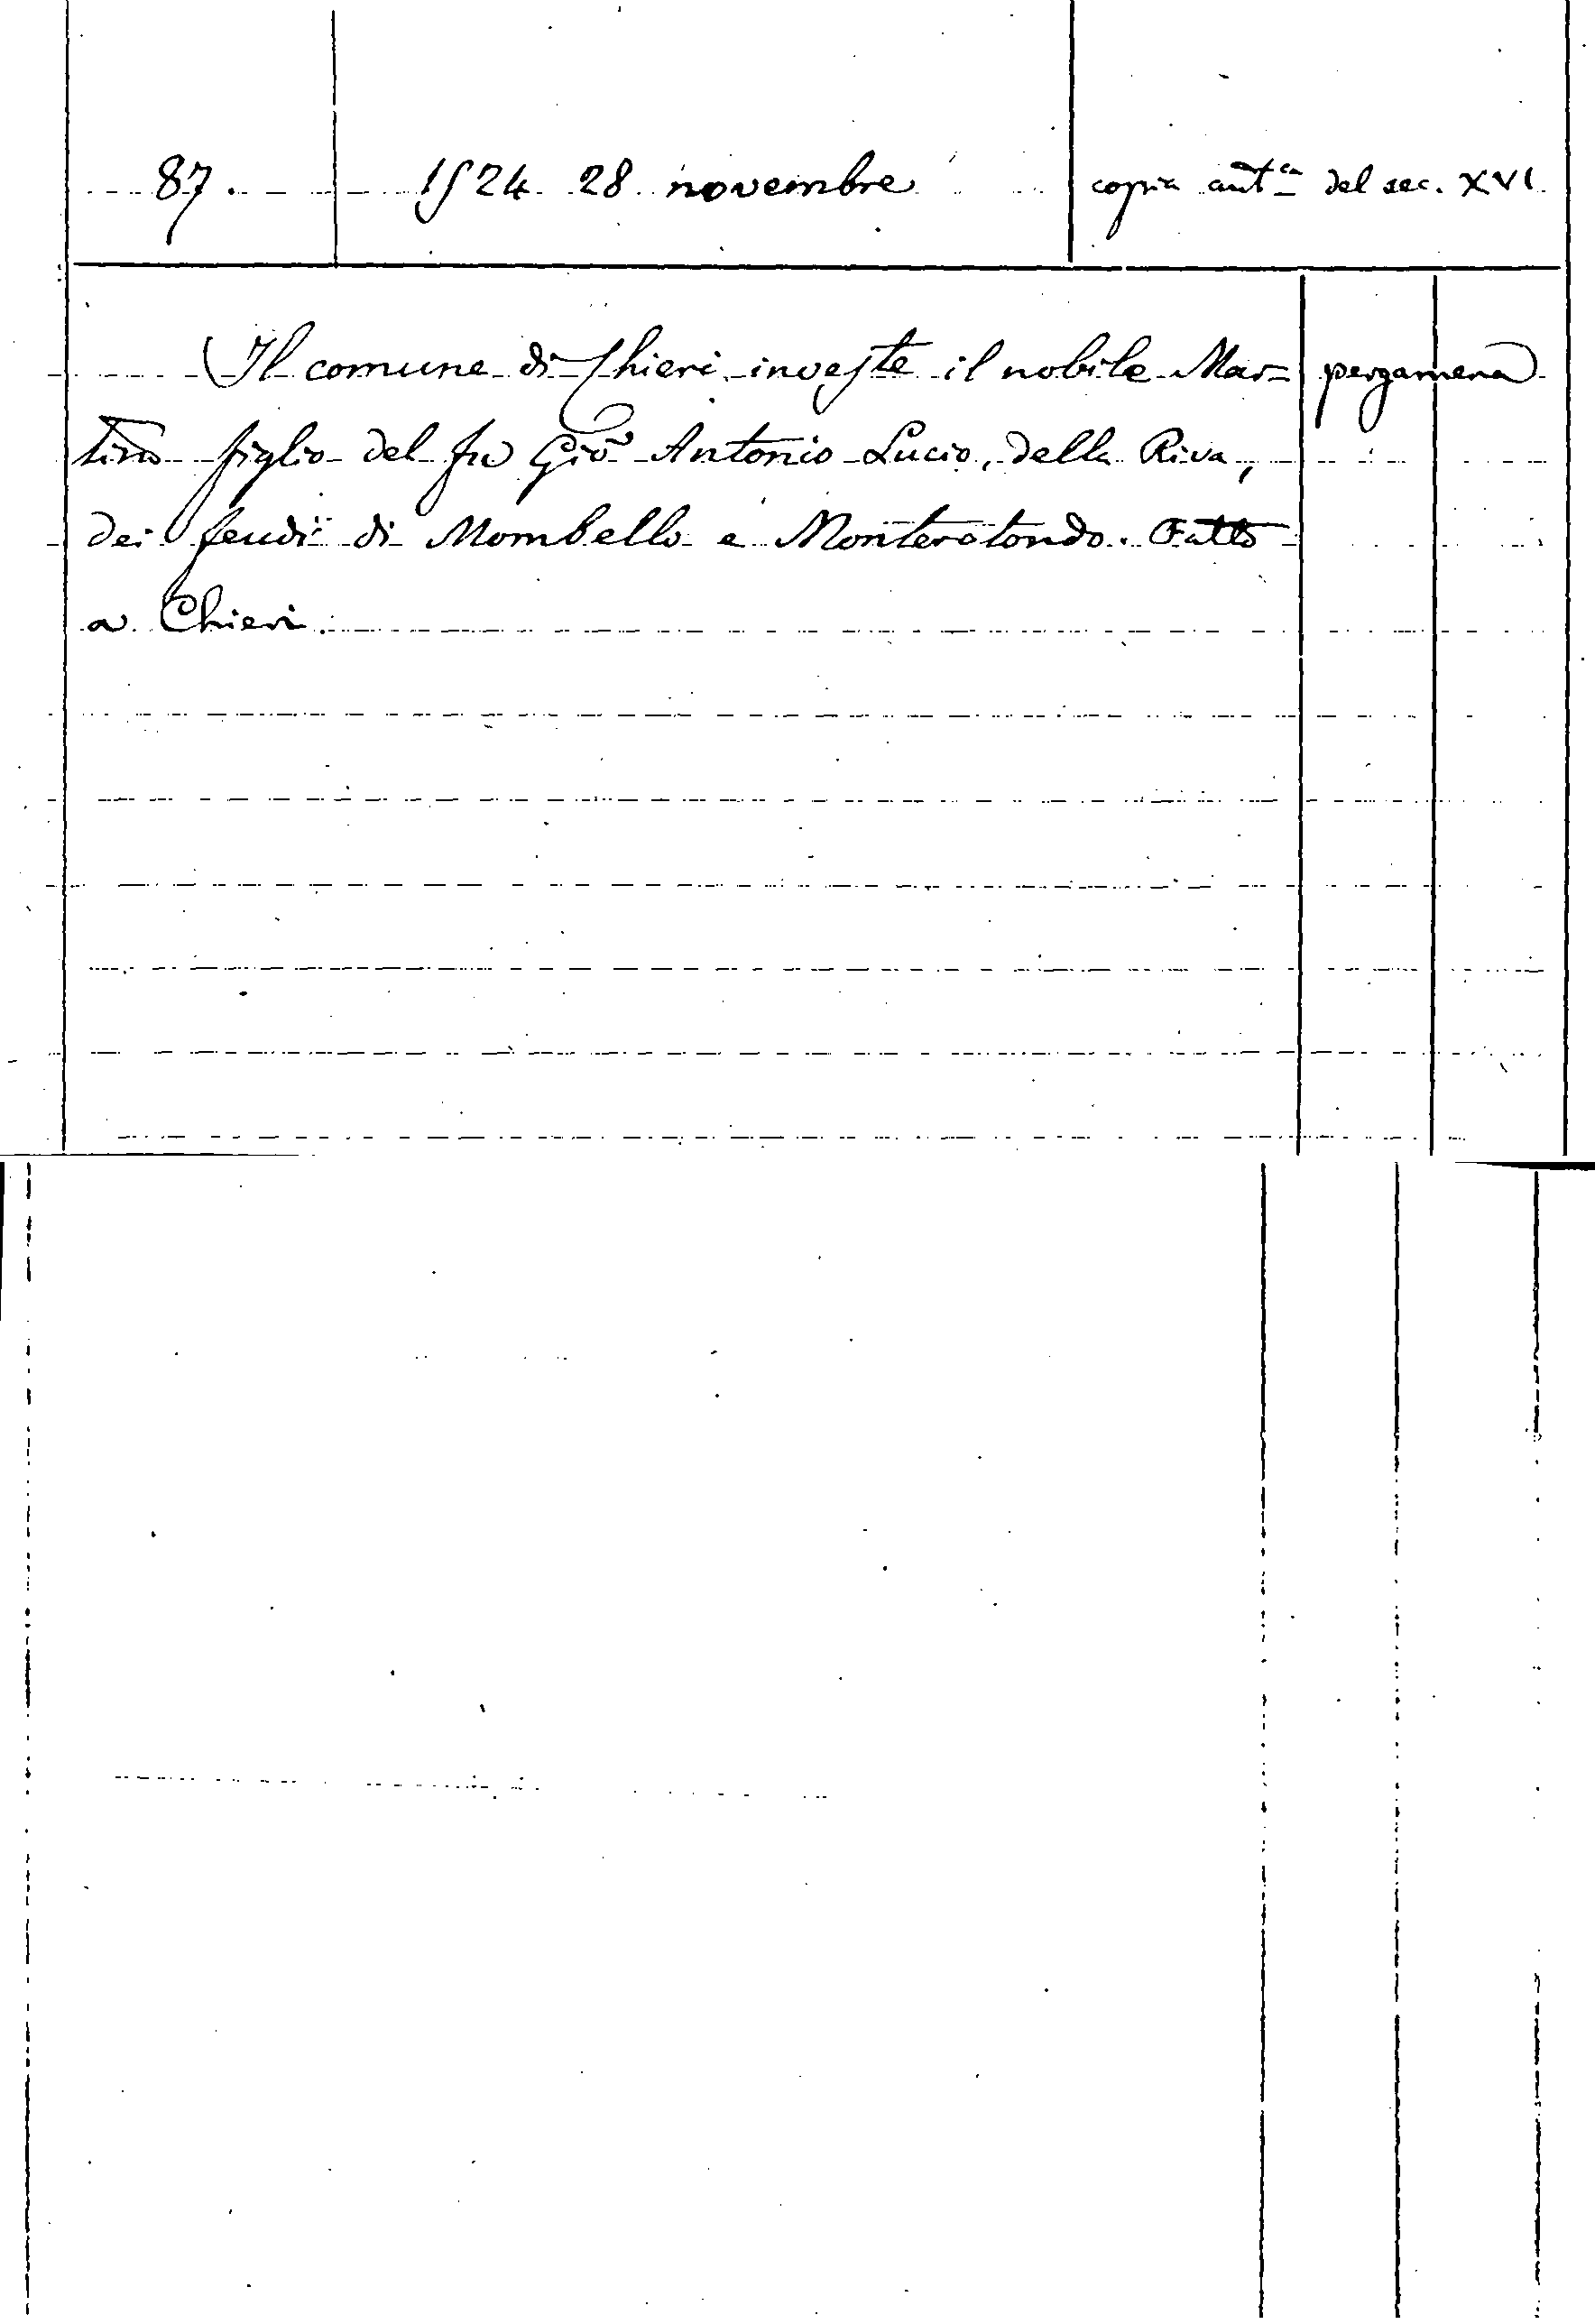 87. 1524 28 novembre copia aut.ca del sec. XVI
Il comune di Chieri investe il nobile Mar= pergamena
tino figlio del fu Gio Antonio Lucio, della Riva,
dei feudi di Mombello e Monterotondo. Fatto
a Chieri.